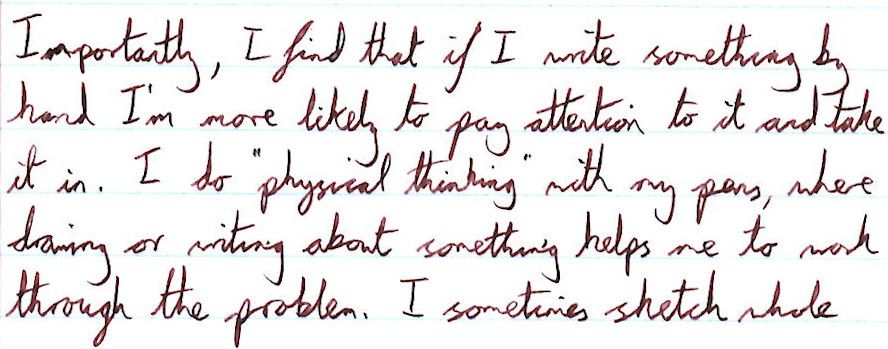 Importantly, I find that if I write something by
hand I'm more likely to pay attention to it and take
it in. I do "physical thinking" with my pens, where
drawing or writing about something helps me to work
through the problem. I sometimes sketch whole